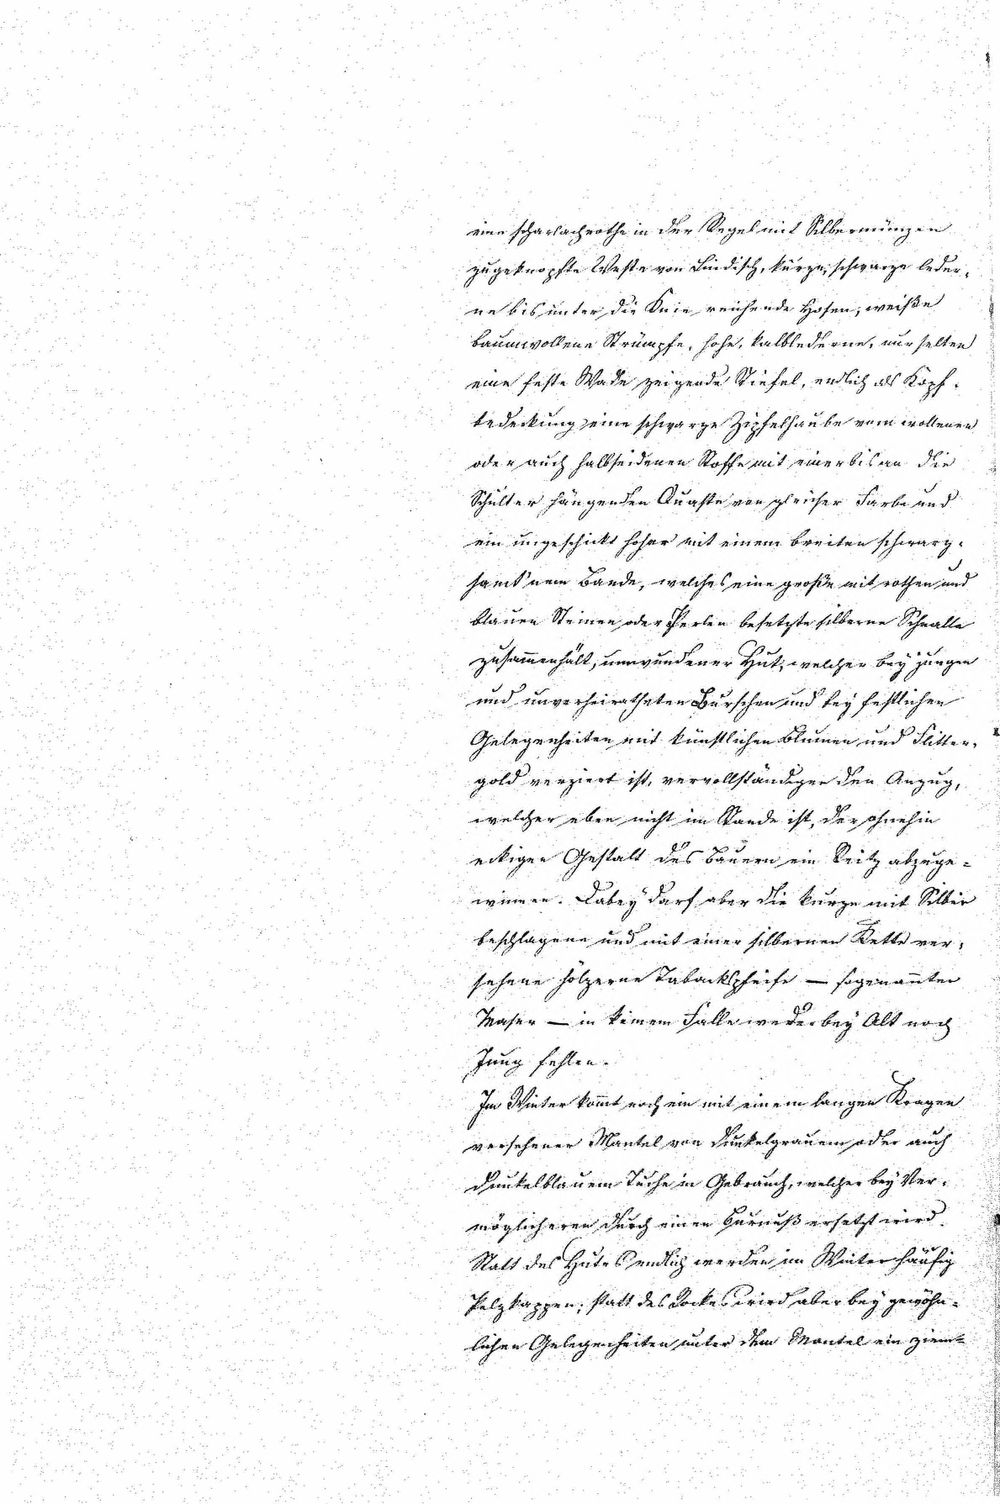 eine scharlachrothe in der Regel mit Silbermünzen
zugeknöpfte Weste von Lindisch, kurze, schwarze leder-
ne bis unter die Knie reichende Hosen, weiße
baumwollene Strümpfe, hohe, kalblederne, nur selten
eine feste Wade zeigende Stiefel, endlich als Kopf-
bedeckung eine schwarze Zipfelhaube vom wollenen
oder auch halbseidenen Stoffe mit einer bis an die
Schulter hängenden Quaste von gleicher Farbe und
ein ungeschickt hoher mit einem breiten schwarz-
samt'nem Bande, welches eine große mit rothen und
blauen Steinen oder Perlen besetzte silberne Schnalle
zusam̄enhält, umwundener Hut, welcher bey jungen
und unverheiratheten Burschen und bey festlichen
Gelegenheiten mit künstlichen Blumen und Flitter-
gold verziert ist, vervollständigen den Anzug,
welcher eben nicht im Stande ist, der ohnehin
eckigen Gestalt des Bauern ein Reitz abzuge-
winnen. Dabey darf aber die kurze mit Silber
beschlagene und mit einer silbernen Kette ver-
sehene hölzerne Tabackspfeife — sogenan̄ter
Maser — in keinem Falle weder bey Alt noch
Jung fehlen.
Im Winter kom̄t noch ein mit einem langen Kragen
versehener Mantel von dunkelgrauem oder auch
dunkelblauem Tuche in Gebrauch, welcher bey Ver-
möglicheren durch einen Burnuß ersetzt wird.
Statt des Hutes endlich werden im Winter häufig
Pelzkappen; statt des Rockes wird aber bey gewöhn-
lichen Gelegenheiten unter dem Mantel ein ziem-